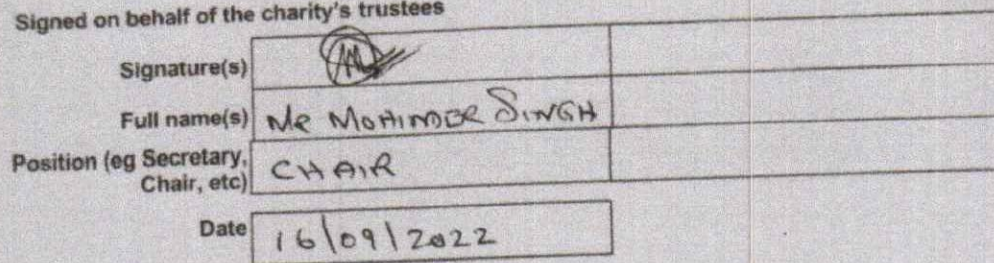 Signed on behalf of the charity's trustees
Signature(s)
Full name(s) Mr MOHINDER SINGH
Position (eg Secretary,
Chair, etc) CHAIR
Date 16/09/2022